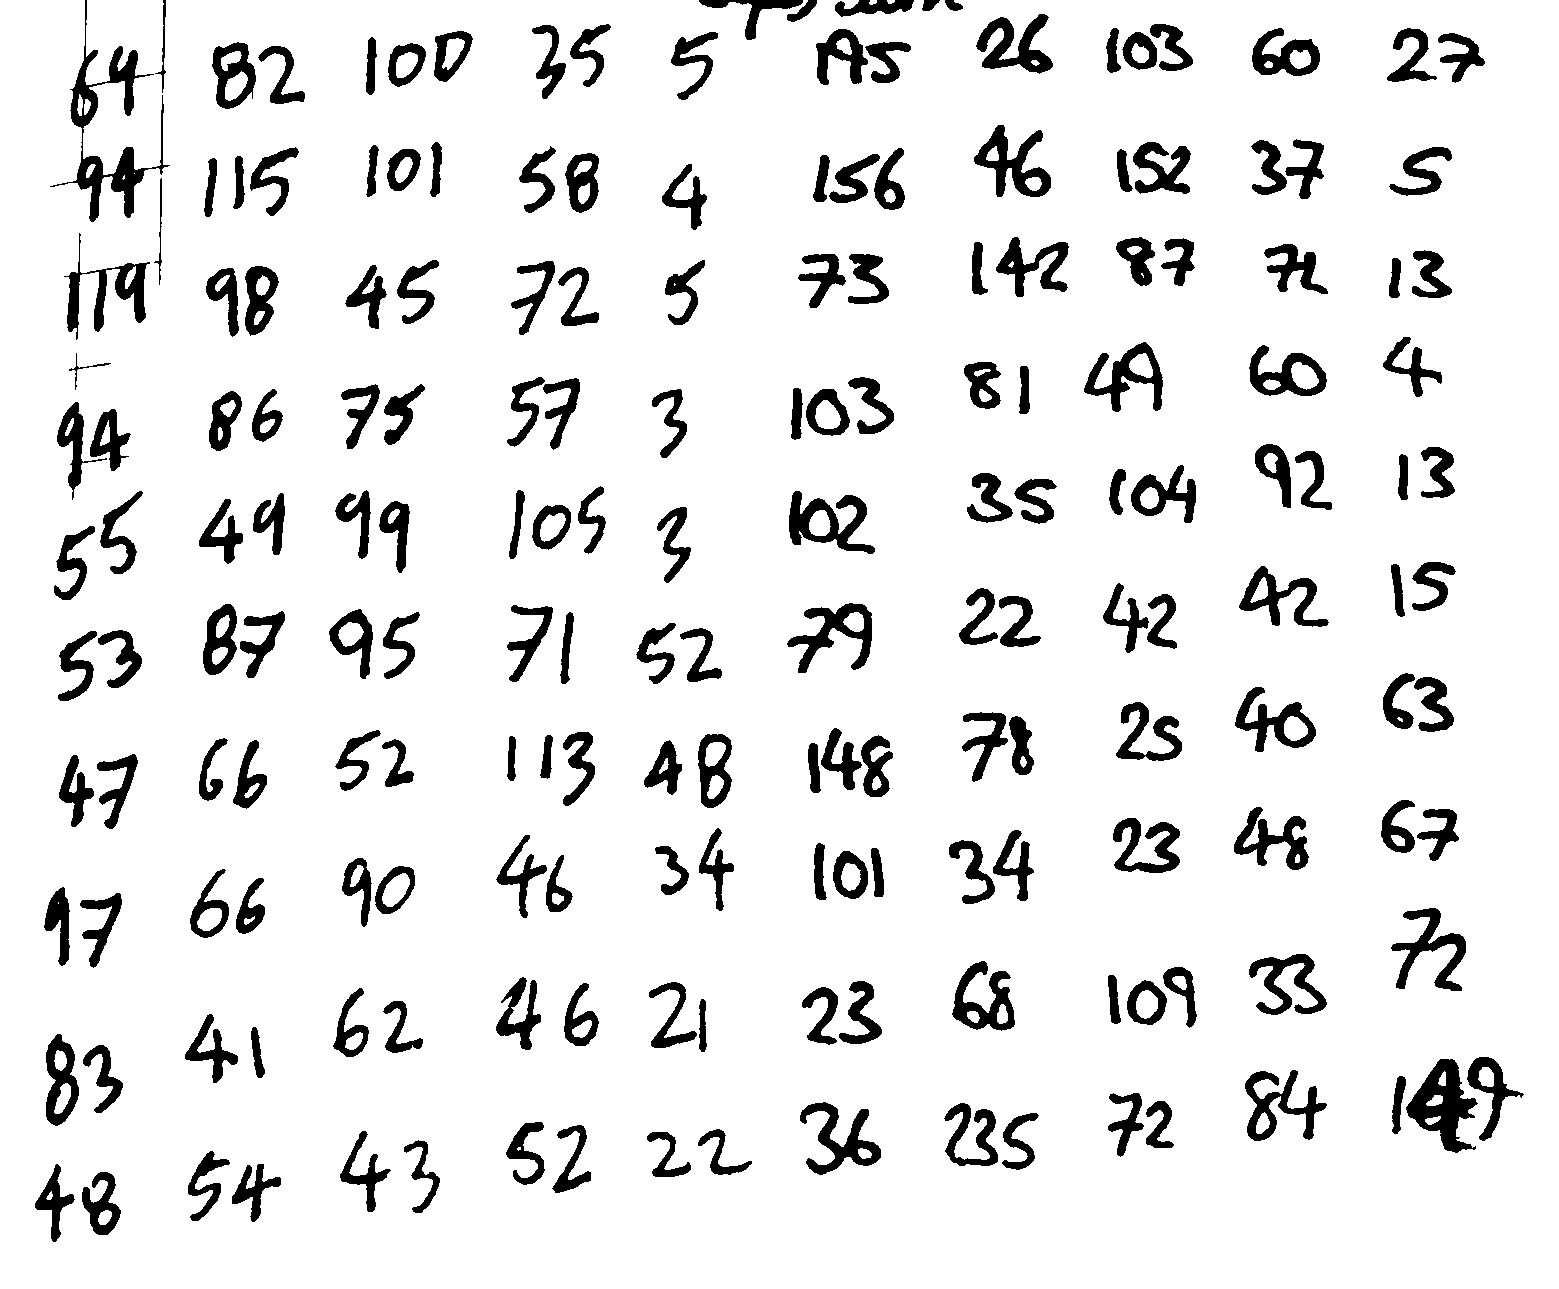 64 82 100 35 5 195 26 103 60 27
94 115 101 58 4 156 46 152 37 5
119 98 45 72 5 73 142 87 72 13
94 86 75 57 3 103 81 49 60 4
55 49 99 105 3 102 35 104 92 13
53 87 95 71 52 79 22 42 42 15
47 66 52 113 48 148 78 25 40 63
97 66 90 46 34 101 34 23 48 67
83 41 62 46 21 23 68 109 33 72
48 54 43 52 22 36 235 72 84